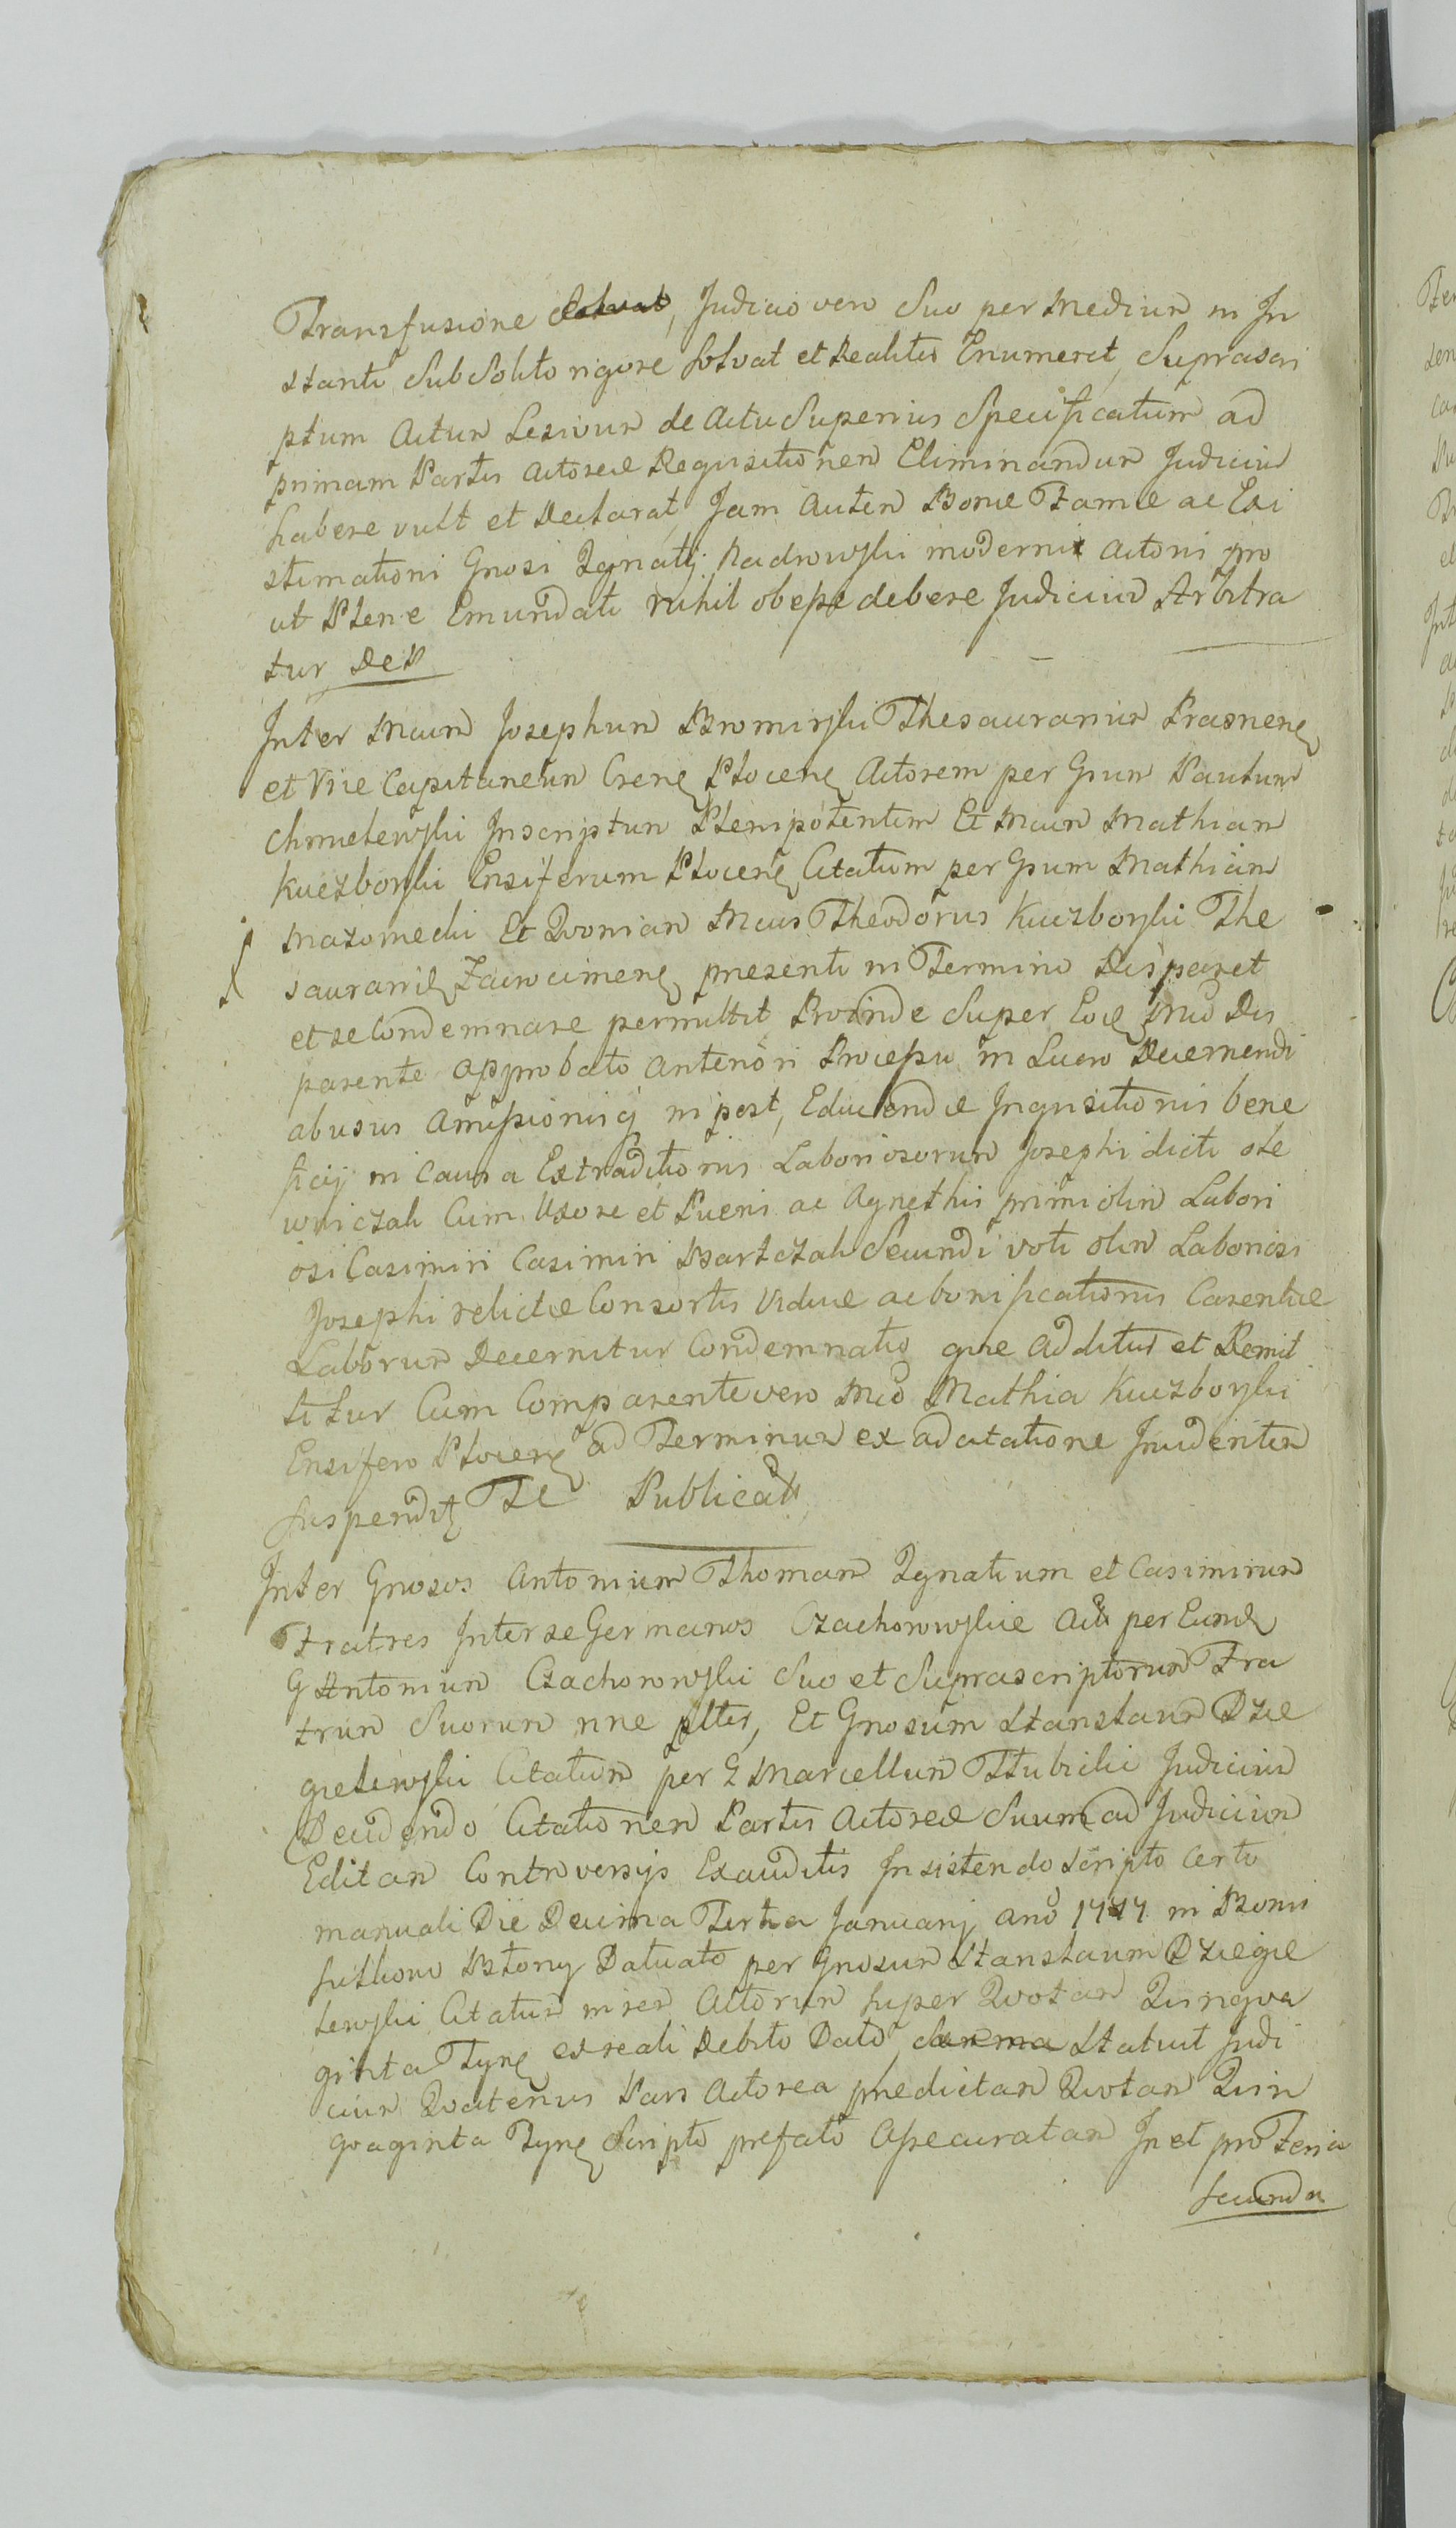 Transfusione Solvat, Judicio vero Suo per Medium in In
stanti Sub Solito rigore Solvat et Realiter Enumeret, Suprascri
ptum Actum Lesivum de Actu Superius Specificatum ad
primam Partis Actoreæ Requisitionem Eliminandum Judicium
habere vult et Declarat, Jam Autem Bonæ Famæ ac Exi
stimationi Gnosi Ignatij Radrowski moderni Actori pro
ut Plene Emundati nihil obesse debere Judicium Arbitra
tur Det
Inter Mcum Josephum Bromirski Thesaurarium Prasnens
et Vice Capitaneum Crens Plocens Actorem per Gnum Paulum
Chmielewski Inscriptum Plenipotentem Et Mcum Mathiam
Kuczborski Ensiferum Plocens Citatum per Gnum Mathiam
Mazomecki Et Qvoniam Mcus Theodorus Kuczborski The
saurarid Zawcimens presenti in Termino Disparet
et se Condemnare permittit Proinde Super Eod Mco Dis
parente approbato Anteriori Processu in Lucro Decernendi
abusus Amissionisq in post, Educendæ Inqusitionis bene
ficij in Causa Extraditionis Laboriosorum Josephi dicti Ole
wniczak Cum Uxore et Pueris ac Agnethis primi olim Labori
osi Casimiri Casimiri Bartczak Secundi voti olim Laboriosi
Josephi relictæ Consortis Viduæ ac bonificationis Carentiæ
Laborum Decernitur Condemnatio quæ Additur et Remit
titur Cum Comparente vero Mco Mathia Kuczborski
Ensifero Plocens ad Terminum ex adcitatione Incidentem
Suspendit Te Publicat
Inter Gnosos Antonium Thomam Ignatium et Casimirum
Fratres Inter se Germanos Czachorowskie Act per Eund
G Antonium Czachorowski Suo et Suprascriptorum Fra
trum Suorum nne pltes, Et Gnosum Stanslaum Dzie
gielewski Citatum per G Marcellum Stubicki Judicium
Decidendo Citationem Partis Actoreæ Suum ad Judicium
Editam Controversijs Exauditis Insistendo Scripto Certo
manuali Die Decima Tertia Januarij ano 1747 in Bonis
Sitkowo Btony Datuato per Gnosum Stanslaum Dziegie
lewski Citatum in rem Actorum super Qvotam Qvingva
ginta Tyns ex reali Debito Dato, Statuit Judi
cium Qvatenus Pars Actorea predictam Qvotam Qvin
gvaginta Tyns Scripto prefato Assecuratam In et pro Feria
secunda